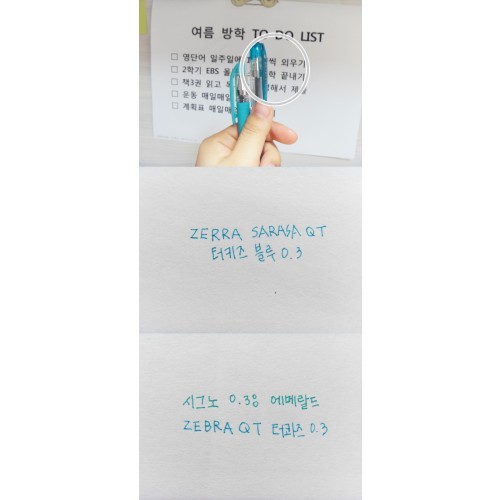 여름 방학 TO DO LIST
□ 영단어 일주일에 씩 외우기
□ 2학기 EBS 올 학 끝내기
□ 책3권 읽고 해서
□ 운동 매일매일
□ 계획표 매일매
ZERRA SARASA QT
터키즈 블루 0.3
시그노 0.38 에메랄드
ZEBRA QT 터콰즈 0.3